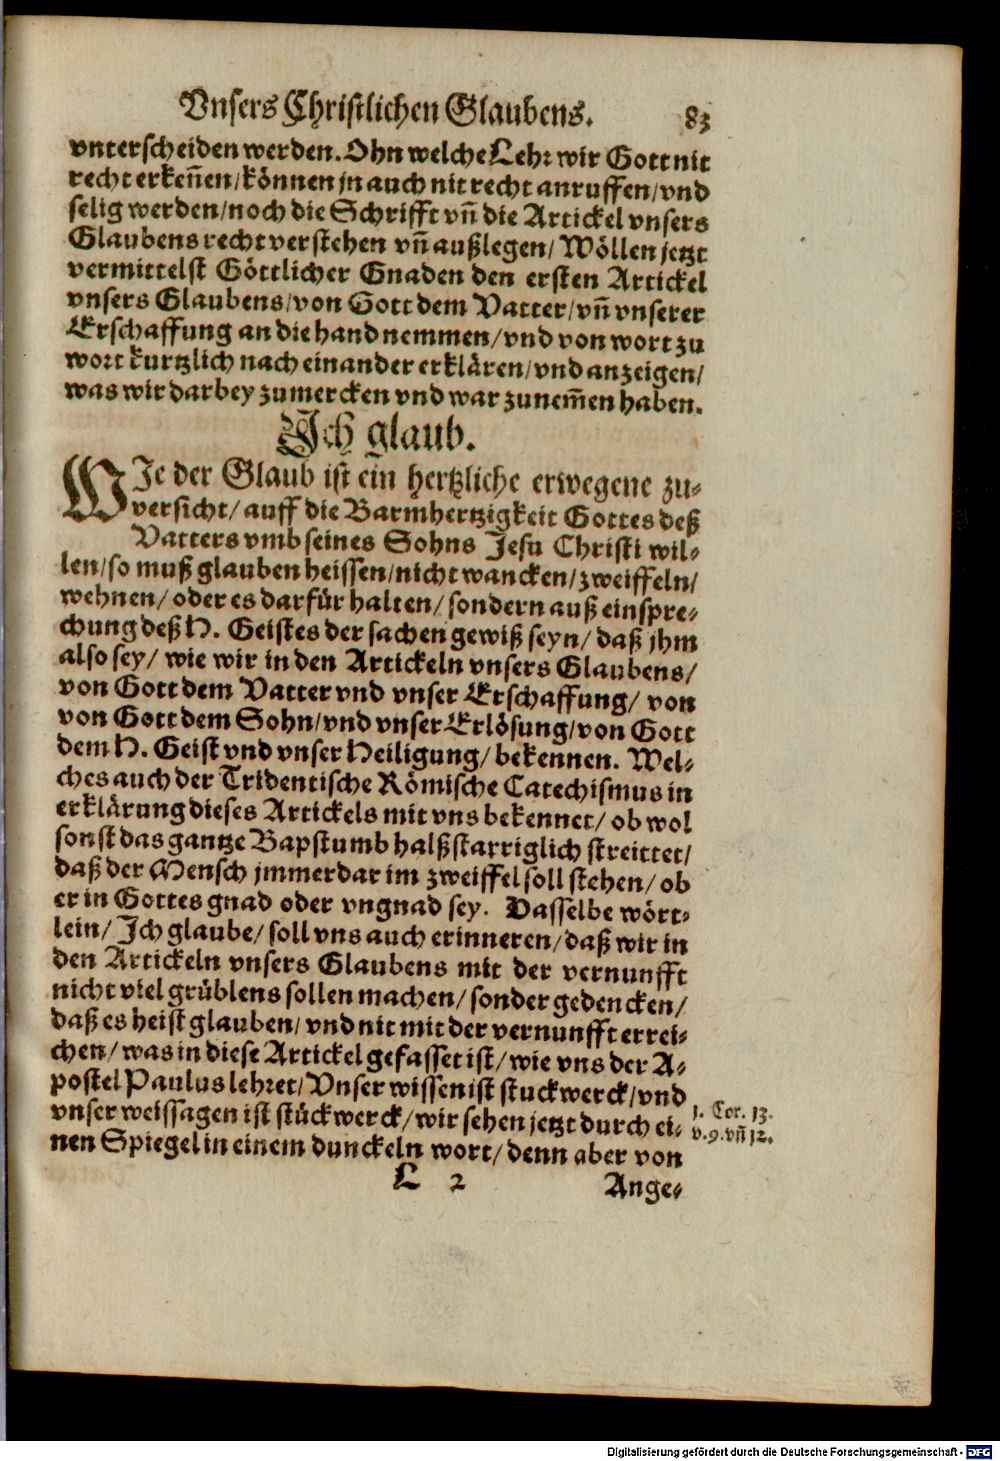 Vnsers Christlichen Glaubens. 83
vnterscheiden werden. Ohn welche Lehr wir Gott nit
recht erkeñen/ können jn auch nit recht anruffen/ vnd
selig werden/ noch die Schrifft vñ die Artickel vnsers
Glaubens recht verstehen vñ außlegen/ Wöllen jetzt
vermittelst Göttlicher Gnaden den ersten Artickel
vnsers Glaubens/ von Gott dem Vatter/ vñ vnserer
Erschaffung an die hand nemmen/ vnd von wort zu
wort kurtzlich nach einander erklären/ vnd anzeigen/
was wir darbey zumercken vnd war zunem̃en haben.
Ich glaub.
WIe der Glaub ist ein hertzliche erwegene zu-
versicht/ auff die Barmhertzigkeit Gottes deß
Vatters vmb seines Sohns Jesu Christi wil-
len/ so muß glauben heissen/ nicht wancken/ zweiffeln/
wehnen/ oder es darfür halten/ sondern auß einspre-
chung deß H. Geistes der sachen gewiß seyn/ daß jhm
also sey/ wie wir in den Artickeln vnsers Glaubens/
von Gott dem Vatter vnd vnser Erschaffung/ von
von Gott dem Sohn/ vnd vnser Erlösung/ von Gott
dem H. Geist vnd vnser Heiligung/ bekennen. Wel-
ches auch der Tridentische Römische Catechismus in
erklärung dieses Artickels mit vns bekennet/ ob wol
sonst das gantze Bapstumb halßstarriglich streittet/
daß der Mensch jmmerdar im zweiffel soll stehen/ ob
er in Gottes gnad oder vngnad sey. Dasselbe wört-
lein/ Ich glaube/ soll vns auch erinneren/ daß wir in
den Artickeln vnsers Glaubens mit der vernunfft
nicht viel grüblens sollen machen/ sonder gedencken/
daß es heist glauben/ vnd nit mit der vernunfft errei-
chen/ was in diese Artickel gefasset ist/ wie vns der A-
postel Paulus lehret/ Vnser wissen ist stuckwerck/ vnd
vnser weissagen ist stückwerck/ wir sehen jetzt durch ei-
nen Spiegel in einem dunckeln wort/ denn aber von
1. Cor. 13.
v. 9. vñ 12.
L 2 Ange-
Digitalisierung gefördert durch die Deutsche Forschungsgemeinschaft - DFG